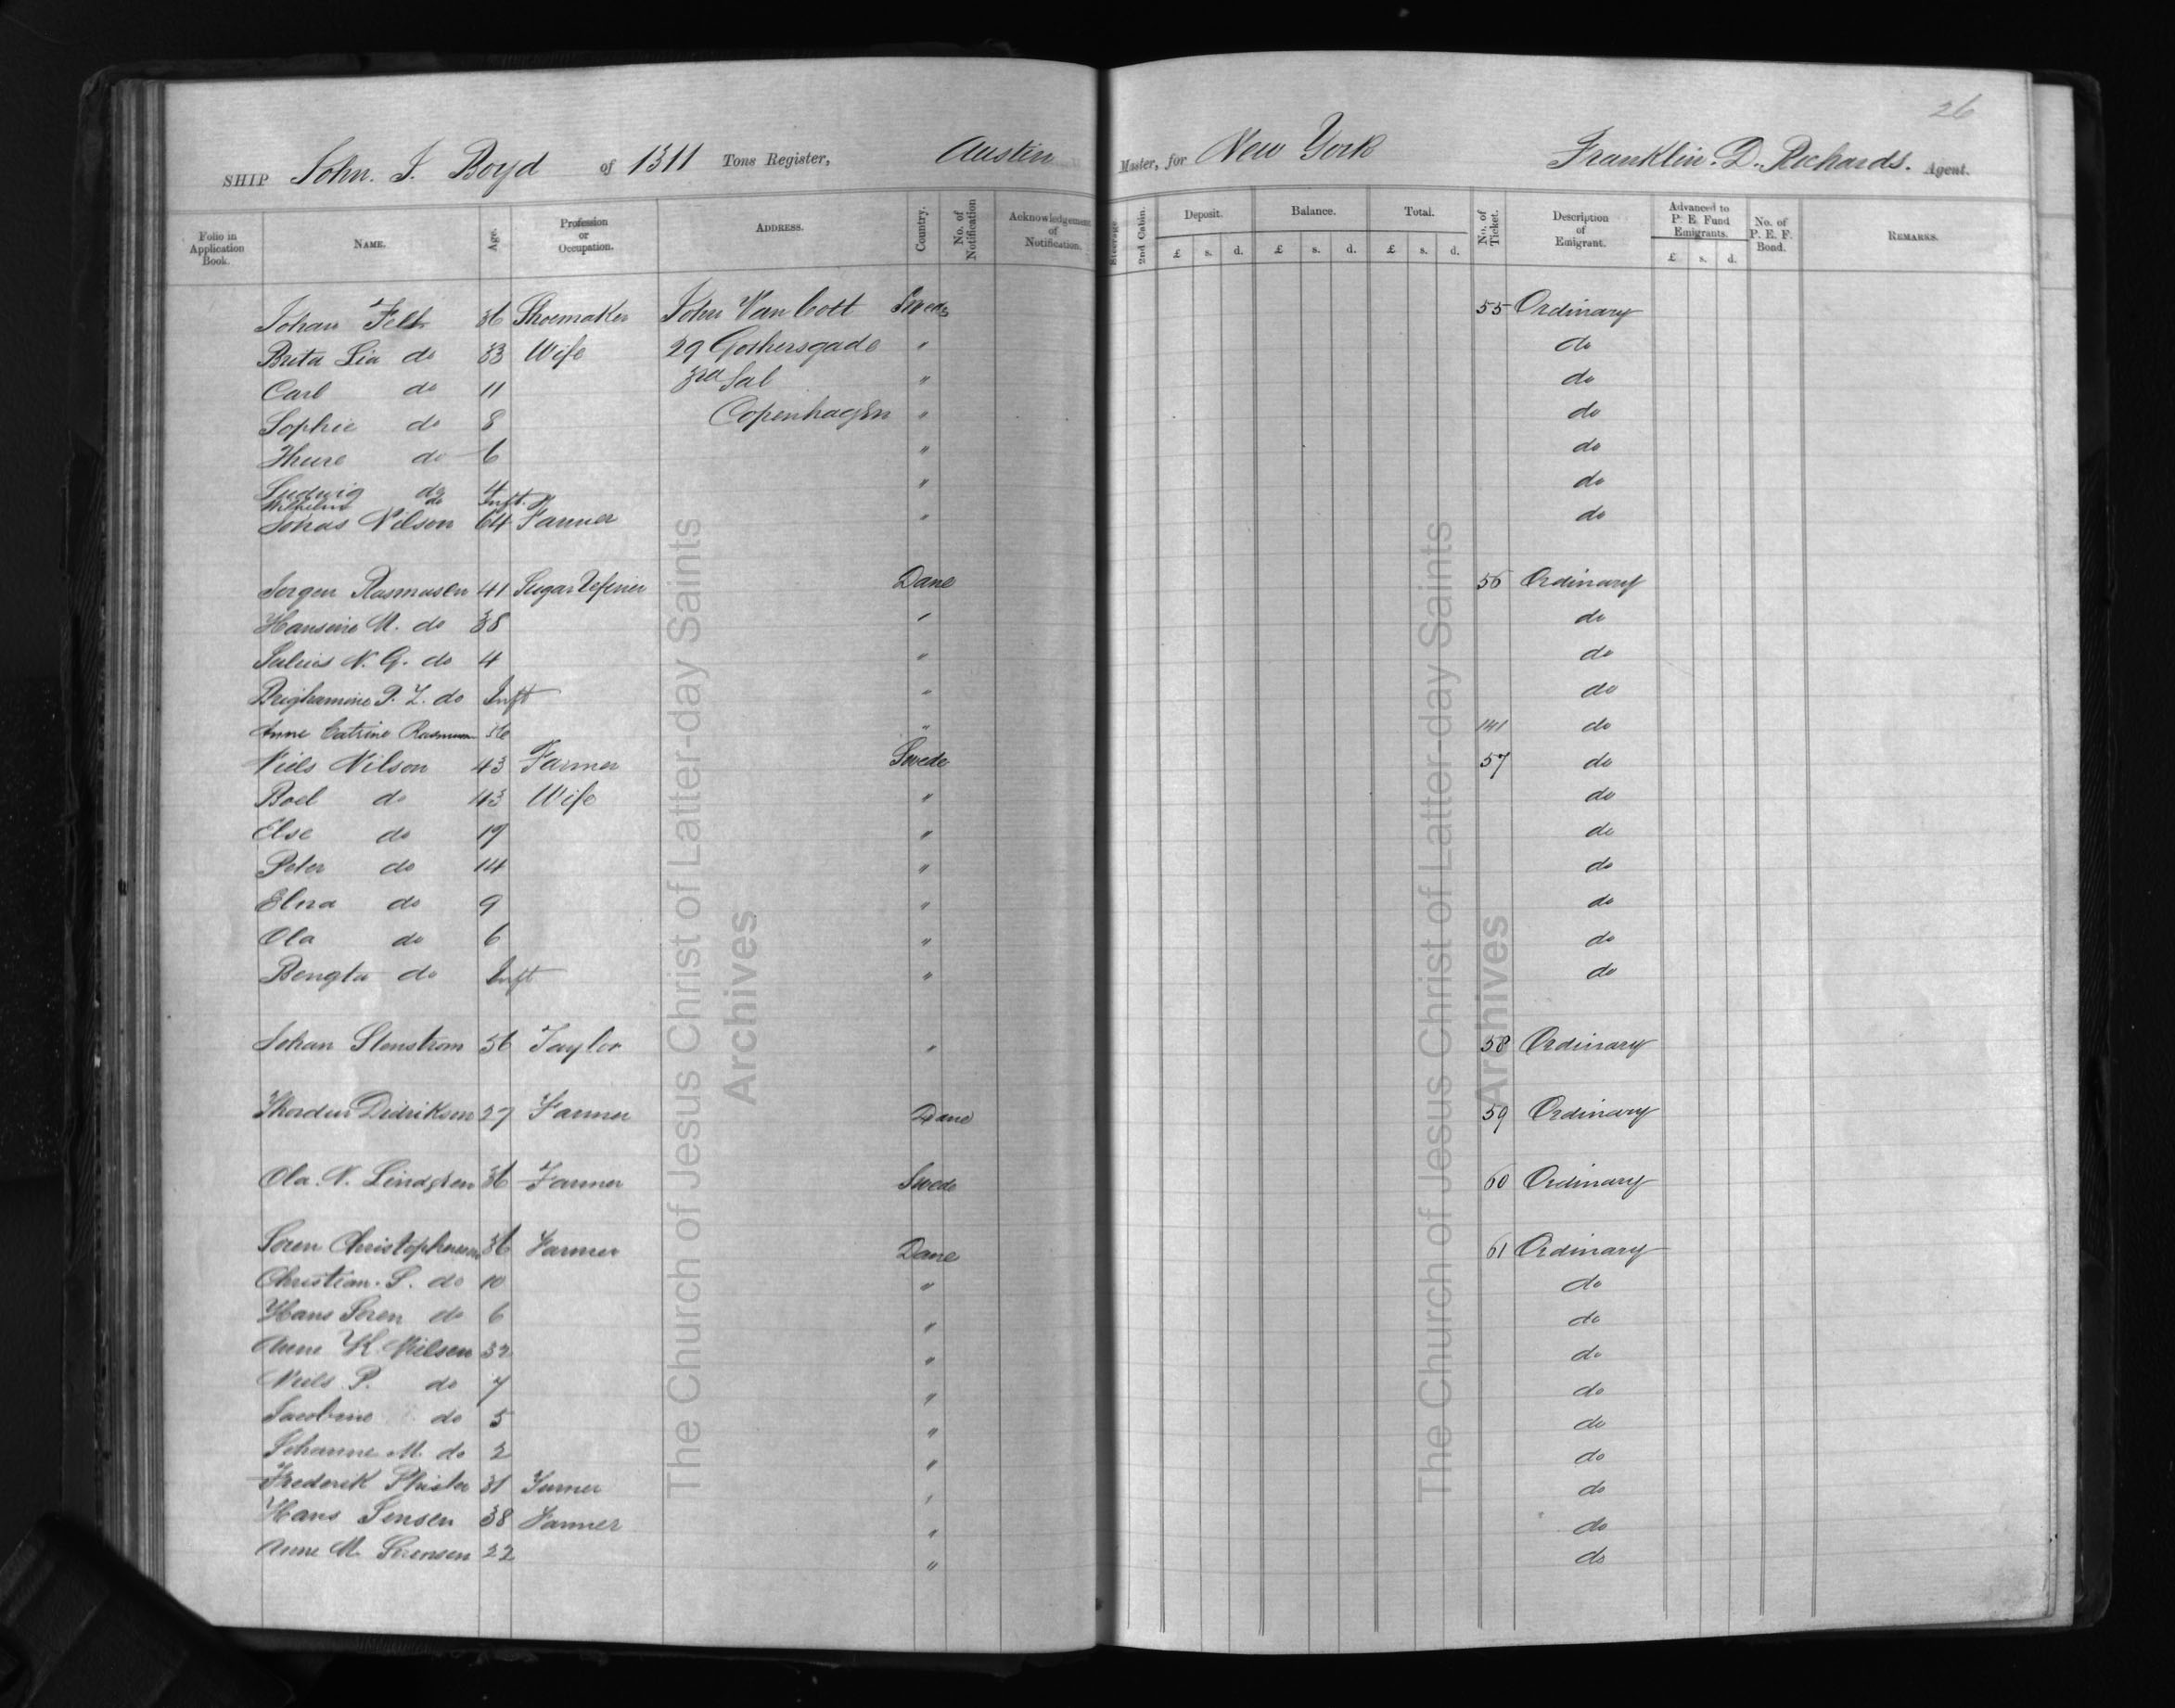 26
SHIP John. J. Boyd of 1311 Tons Register, Austin Master, for New York Franklin. D. Richards. Agent.
Folio in Application Book. NAME. Age. Profession or Occupation. ADDRESS. Country. No. of Notification Acknowledgement of Notification. Steerage. 2nd Cabin. Deposit. Balance. Total. No. of Ticket. Description of Emigrant. Advanced to P. E. Fund Emigrants. No. of P. E. F. Bond. REMARKS.
£ s. d. £ s. d. £ s. d. £ s. d.
Johan Felt 36 Shoemaker John Van Cott Swede 55 Ordinary
Brita Lia do 33 Wife 29 Gothersgade " do
Carl do 11 3rd Sal " do
Sophie do 8 Copenhagen " do
Thure do 6 " do
Ludwig do 4 " do
Wilhelm do Inft.
Jonas Nilson 64 Farmer " do
Jorgen Rasmusen 41 Sugar Refiner Dane 56 Ordinary
Hansine M. do 38 " do
Julius N. G. do 4 " do
Brighamine P. Z. do Inft " do
Anne Catrine Rasmusen 56 " 141 do
Niels Nilson 43 Farmer Swede 57 do
Boel do 43 Wife " do
Else do 19 " do
Peter do 14 " do
Elna do 9 " do
Ola do 6 " do
Bengta do Inft " do
Johan Stenstrom 56 Taylor " 58 Ordinary
Thordur Didrikson 27 Farmer Dane 59 Ordinary
Ola. N. Lindgren 36 Farmer Swede 60 Ordinary
Soren Christophersen 36 Farmer Dane 61 Ordinary
Christian. S. do 10 " do
Hans Soren do 6 " do
Anne K. Nielsen 32 " do
Niels P. do 7 " do
Jacobine do 5 " do
Johanne M. do 2 " do
Frederik 31 " do
Hans Jensen 38 Farmer " do
Anne M. Sorensen 22 " do
The Church of Jesus Christ of Latter-day Saints
Archives
The Church of Jesus Christ of Latter-day Saints
Archives